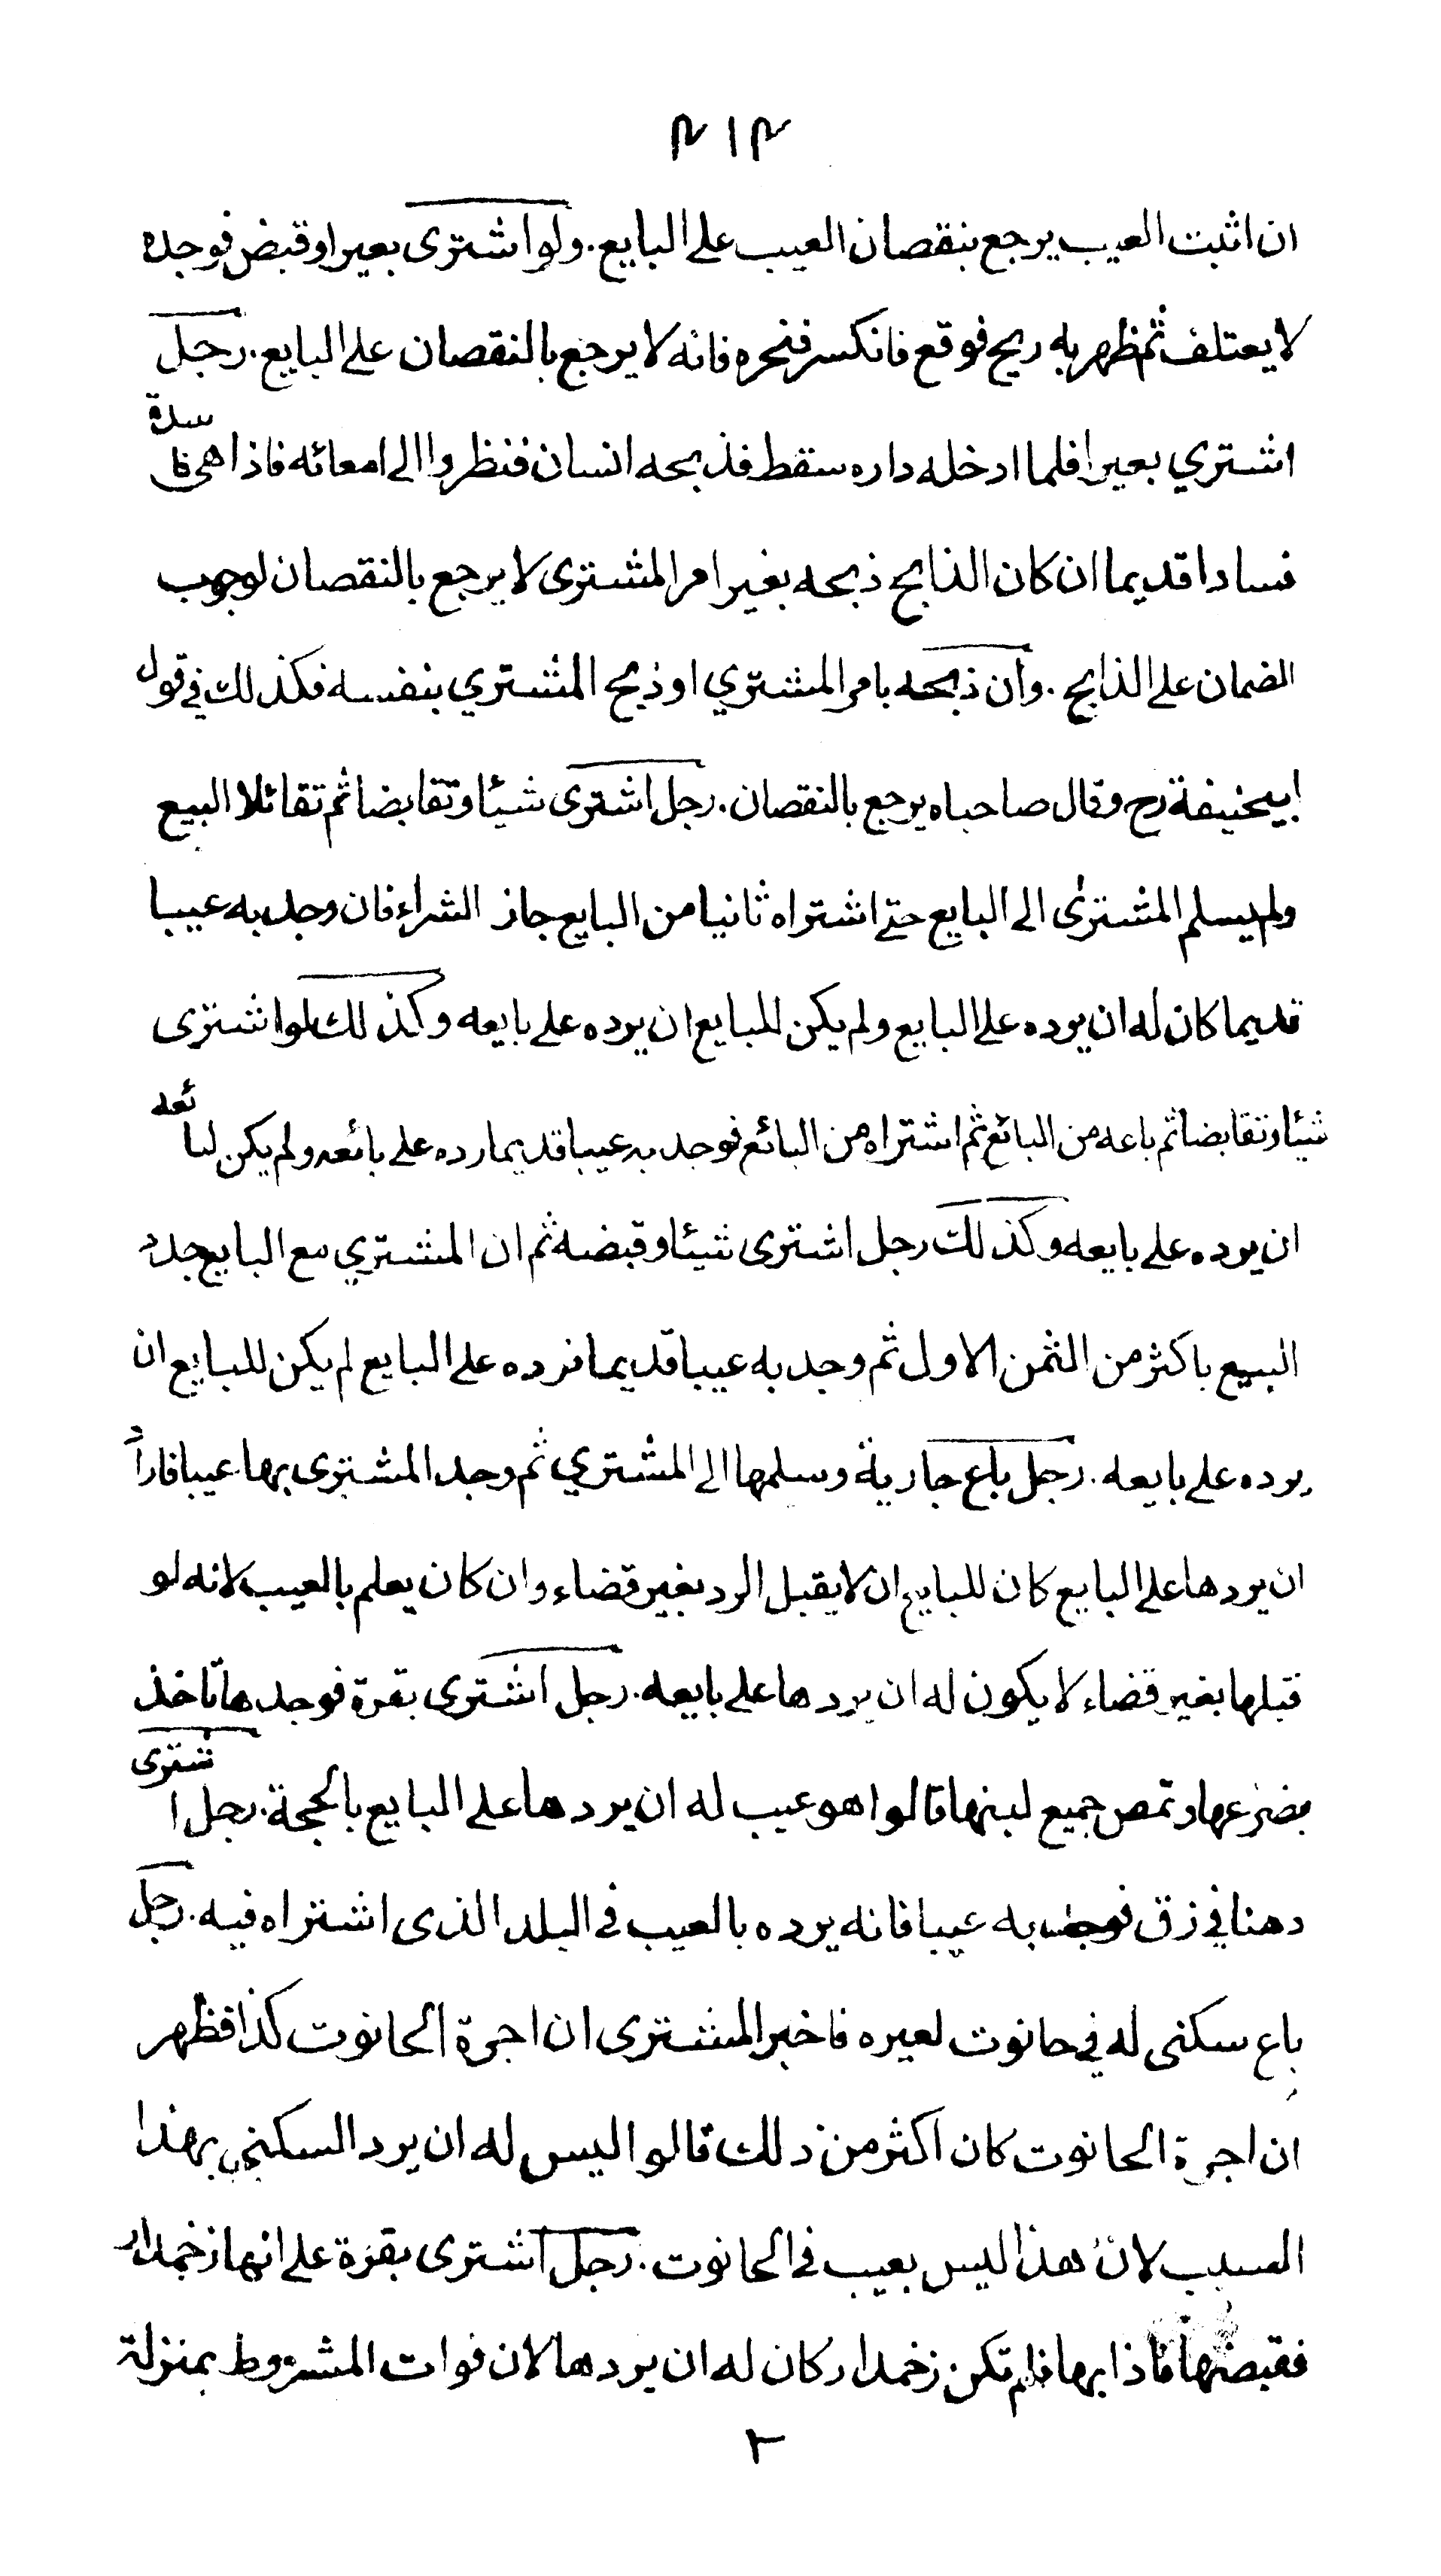 ٢١٢
ان اثبت العيب يرجع بنقصان العيب على البايع. ولو اشترى بعيرا وقبض فوجده
لا يعتلف ثم ظهر به ريح فوقع فانكسر فنحره فانه لا يرجع بالنقصان على البايع. رجل
اشتري بعيرا فلما ادخله داره سقط فذبحه انسان فنظروا الى امعائه فاذا هى فاسدة
فسادا قديما ان كان الذابح ذبحه بغير امر المشترى لا يرجع بالنقصان لوجوب
الضمان على الذابح . وان ذبحه بامر المشتري او ذبح المشتري بنفسه فكذلك في قول
ابيحنيفة رح وقال صاحباه يرجع بالنقصان. رجل اشترى شيئا وتقابضا ثم تقائلا البيع
ولم يسلم المشترى الى البايع حتى اشتراه ثانيا من البايع جاز الشراء فان وجد به عيبا
قديما كان له ان يرده على البايع ولم يكن للبايع ان يرده على بايعه وكذلك لو اشترى
شيئا وتقابضا ثم باعه من البائع ثم اشتراه من البائع فوجد به عيبا قديما رده على بائعه ولم يكن لبائعه
ان يرده على بايعه وكذلك رجل اشترى شيئا وقبضه ثم ان المشتري مع البايع جدد
البيع باكثر من الثمن الاول ثم وجد به عيبا قديما فرده على البايع لم يكن للبايع ان
يرده على بايعه . رجل باع جارية وسلمها الى المشتري ثم وجد المشترى بها عيبا فاراد
ان يردها على البايع كان للبايع ان لا يقبل الرد بغير قضاء وان كان يعلم بالعيب لانه لو
قبلها بغير قضاء لا يكون له ان يردها على بايعه. رجل اشترى بقرة فوجدها تاخذ
بضرعها وتمص جميع لبنها قالوا هو عيب له ان يردها على البايع بالحجة. رجل اشترى
دهنا في زق فوجد به عيبا فانه يرده بالعيب في البلد الذى اشتراه فيه . رجل
باع سكنى له في حانوت لغيره فاخبر المشترى ان اجرة الحانوت كذا فظهر
ان اجرة الحانوت كان اكثر من ذلك قالوا ليس له ان يرد السكنى بهذا
السبب لان هذا ليس بعيب في الحانوت . رجل اشترى بقرة على انها زخمدار
فقبضها فاذا بها فلم تكن زخمدار كان له ان يردها لان فوات المشروط بمنزلة
٢